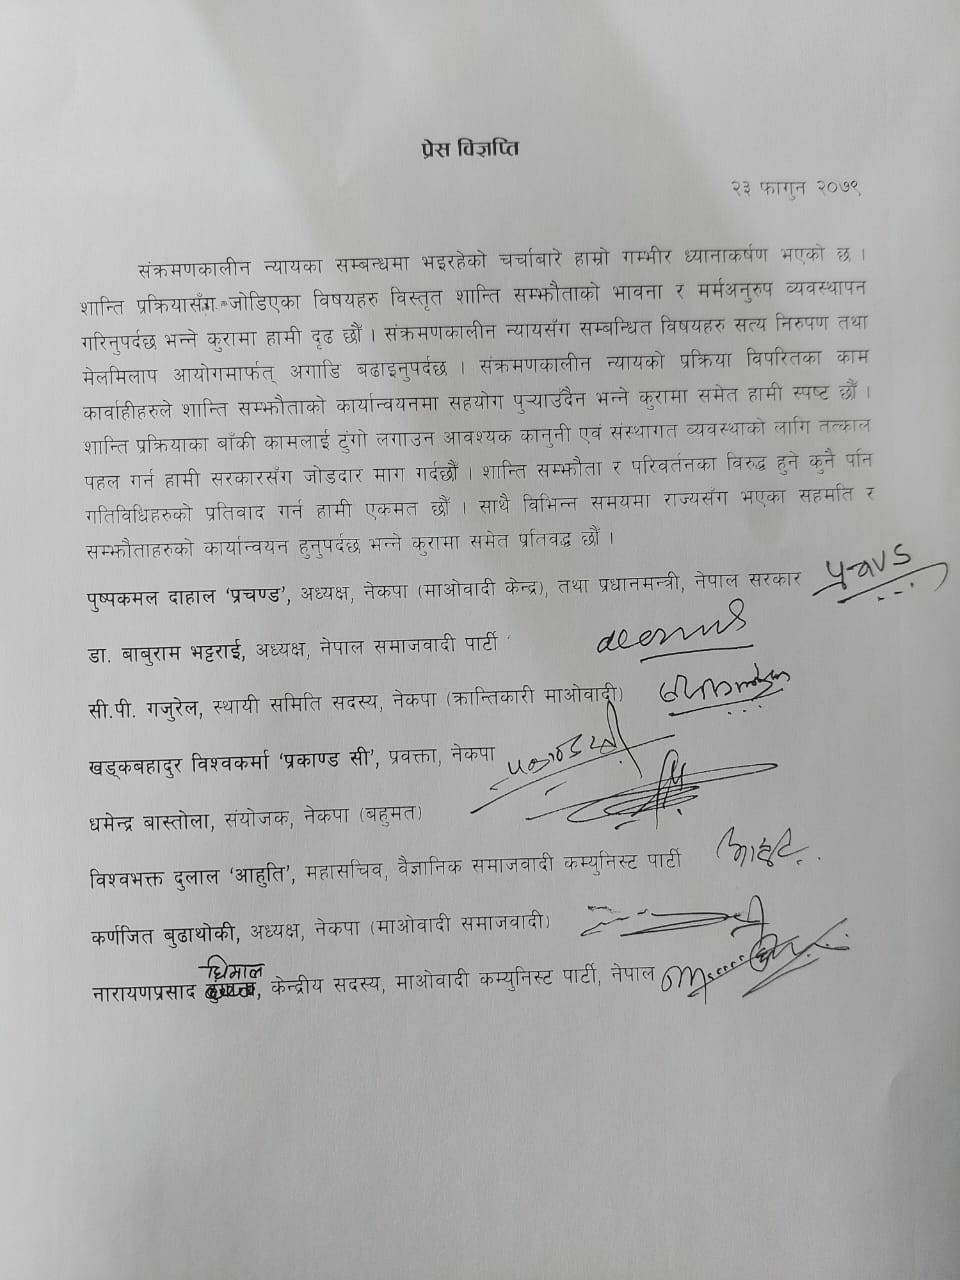 प्रेस विज्ञप्ति
२३ फागुन २०७९
संक्रमणकालीन न्यायका सम्बन्धमा भइरहेको चर्चाबारे हाम्रो गम्भीर ध्यानाकर्षण भएको छ ।
शान्ति प्रक्रियासँग जोडिएका विषयहरु विस्तृत शान्ति सम्झौताको भावना र मर्मअनुरुप व्यवस्थापन
गरिनुपर्दछ भन्ने कुरामा हामी दृढ छौं । संक्रमणकालीन न्यायसँग सम्बन्धित विषयहरु सत्य निरुपण तथा
मेलमिलाप आयोगमार्फत् अगाडि बढाइनुपर्दछ । संक्रमणकालीन न्यायको प्रक्रिया विपरितका काम
कार्वाहीहरुले शान्ति सम्झौताको कार्यान्वयनमा सहयोग पुऱ्याउँदैन भन्ने कुरामा समेत हामी स्पष्ट छौं ।
शान्ति प्रक्रियाका बाँकी कामलाई टुंगो लगाउन आवश्यक कानुनी एवं संस्थागत व्यवस्थाको लागि तत्काल
पहल गर्न हामी सरकारसँग जोडदार माग गर्दछौं । शान्ति सम्झौता र परिवर्तनका विरुद्ध हुने कुनै पनि
गतिविधिहरुको प्रतिवाद गर्न हामी एकमत छौं । साथै विभिन्न समयमा राज्यसँग भएका सहमति र
सम्झौताहरुको कार्यान्वयन हुनुपर्दछ भन्ने कुरामा समेत प्रतिवद्ध छौं ।
पुष्पकमल दाहाल ‘प्रचण्ड’, अध्यक्ष, नेकपा (माओवादी केन्द्र), तथा प्रधानमन्त्री, नेपाल सरकार
डा. बाबुराम भट्टराई, अध्यक्ष, नेपाल समाजवादी पार्टी
सी.पी. गजुरेल, स्थायी समिति सदस्य, नेकपा (क्रान्तिकारी माओवादी)
खड्कबहादुर विश्वकर्मा ‘प्रकाण्ड सी’, प्रवक्ता, नेकपा
धमेन्द्र बास्तोला, संयोजक, नेकपा (बहुमत)
विश्वभक्त दुलाल ‘आहुति’, महासचिव, वैज्ञानिक समाजवादी कम्युनिस्ट पार्टी
कर्णजित बुढाथोकी, अध्यक्ष, नेकपा (माओवादी समाजवादी)
धिमाल
नारायणप्रसाद , केन्द्रीय सदस्य, माओवादी कम्युनिस्ट पार्टी, नेपाल